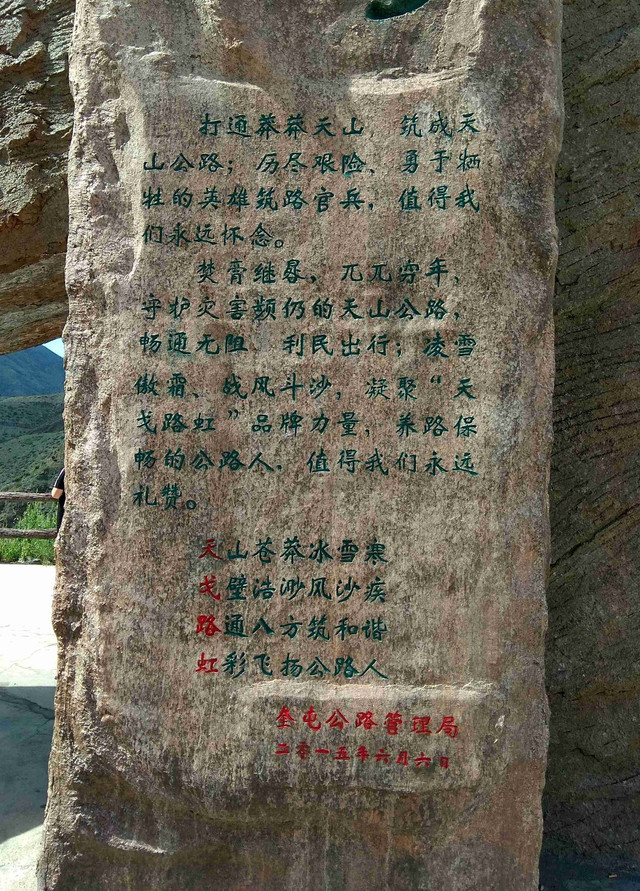 打通莽莽天山，筑成天
山公路；历尽艰险、勇于牺
牲的英雄筑路官兵，值得我
们永远怀念。
焚膏继晷，兀兀穷年，
守护灾害频仍的天山公路，
畅通无阻、利民出行；凌雪
傲霜、战风斗沙，凝聚“天
戈路虹”品牌力量，养路保
畅的公路人，值得我们永远
礼赞。
天山苍莽冰雪寒
戈壁浩渺风沙疾
路通八方筑和谐
虹彩飞扬公路人
奎屯公路管理局
二零一五年六月六日